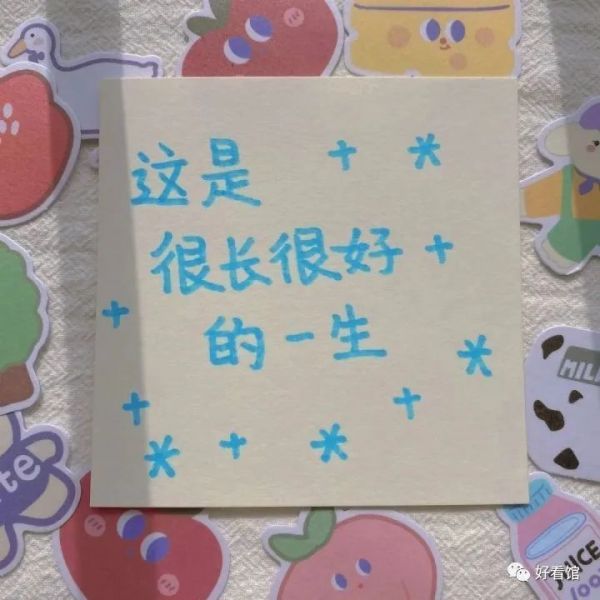 这是
很长很好
的一生
MILK
te
JUICE
100%
好看馆